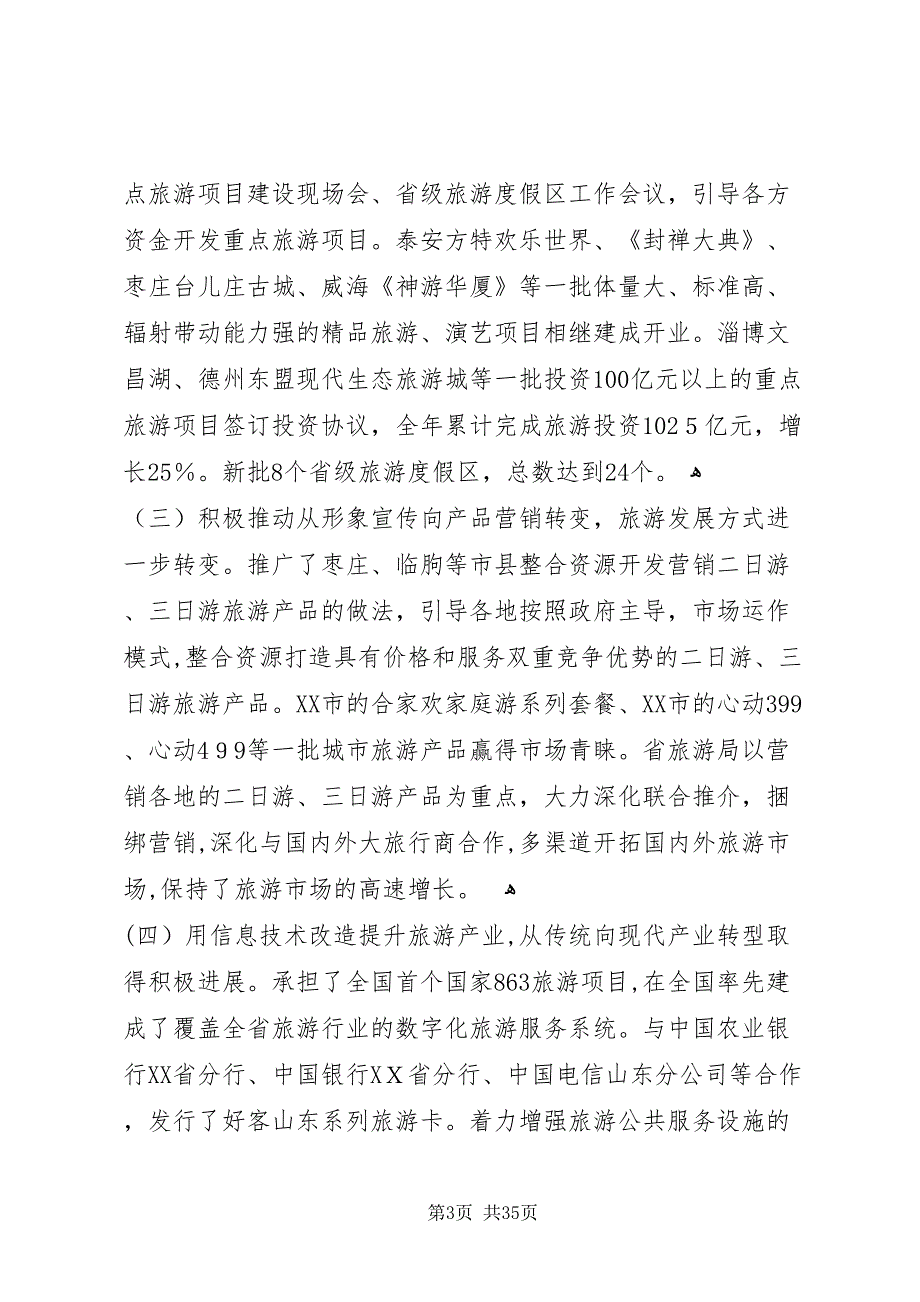 点旅游项目建设现场会、省级旅游度假区工作会议，引导各方
资金开发重点旅游项目。泰安方特欢乐世界、《封禅大典》、
枣庄台儿庄古城、威海《神游华厦》等一批体量大、标准高、
辐射带动能力强的精品旅游、演艺项目相继建成开业。淄博文
昌湖、德州东盟现代生态旅游城等一批投资100亿元以上的重点
旅游项目签订投资协议，全年累计完成旅游投资102５亿元，增
长25％。新批8个省级旅游度假区，总数达到24个。 ﻫ
（三）积极推动从形象宣传向产品营销转变，旅游发展方式进
一步转变。推广了枣庄、临朐等市县整合资源开发营销二日游
、三日游旅游产品的做法，引导各地按照政府主导，市场运作
模式,整合资源打造具有价格和服务双重竞争优势的二日游、三
日游旅游产品。XX市的合家欢家庭游系列套餐、XX市的心动399
、心动4９9等一批城市旅游产品赢得市场青睐。省旅游局以营
销各地的二日游、三日游产品为重点，大力深化联合推介，捆
绑营销,深化与国内外大旅行商合作,多渠道开拓国内外旅游市
场,保持了旅游市场的高速增长。 ﻫ
(四）用信息技术改造提升旅游产业,从传统向现代产业转型取
得积极进展。承担了全国首个国家863旅游项目,在全国率先建
成了覆盖全省旅游行业的数字化旅游服务系统。与中国农业银
行XX省分行、中国银行XＸ省分行、中国电信山东分公司等合作
，发行了好客山东系列旅游卡。着力增强旅游公共服务设施的
第3页 共35页